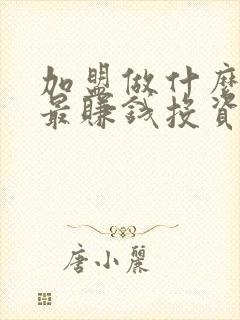 加盟做什麽
最賺錢投資
唐小麗